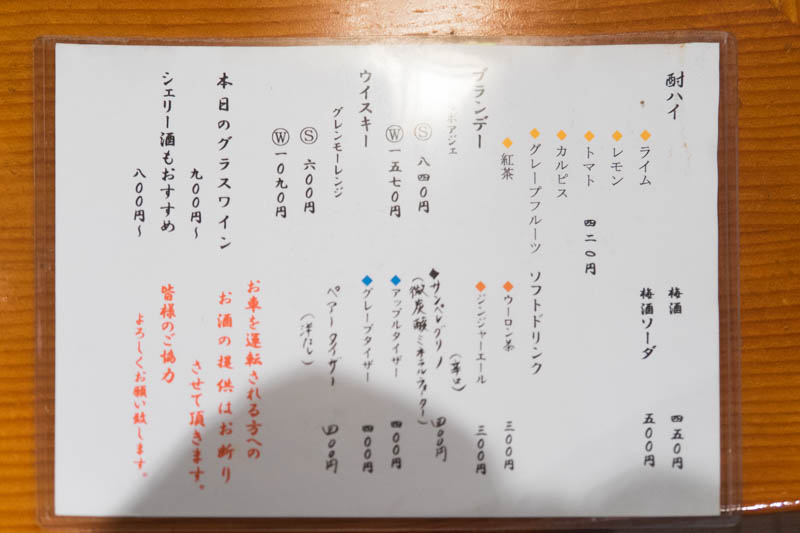 酎ハイ
◆ライム
◆レモン
◆トマト 四二〇円
◆カルピス
◆グレープフルーツ
◆紅茶
ブランデー
ボアジェ
Ⓢ 八四〇円
Ⓦ 一五七〇円
ウイスキー
グレンモーレンジ
Ⓢ 六〇〇円
Ⓦ 一〇九〇円
本日のグラスワイン
九〇〇円〜
シェリー酒もおすすめ
八〇〇円〜
梅酒 四五〇円
梅酒ソーダ 五〇〇円
ソフトドリンク
◆ウーロン茶 三〇〇円
◆ジンジャーエール 三〇〇円
(辛口)
◆サンペレグリノ 四〇〇円
(微炭酸ミネラルウォーター)
◆アップルタイザー 四〇〇円
◆グレープタイザー 四〇〇円
ペアータイザー 四〇〇円
(洋なし)
お車を運転される方への
お酒の提供はお断り
させて頂きます。
皆様のご協力
よろしくお願い致します。